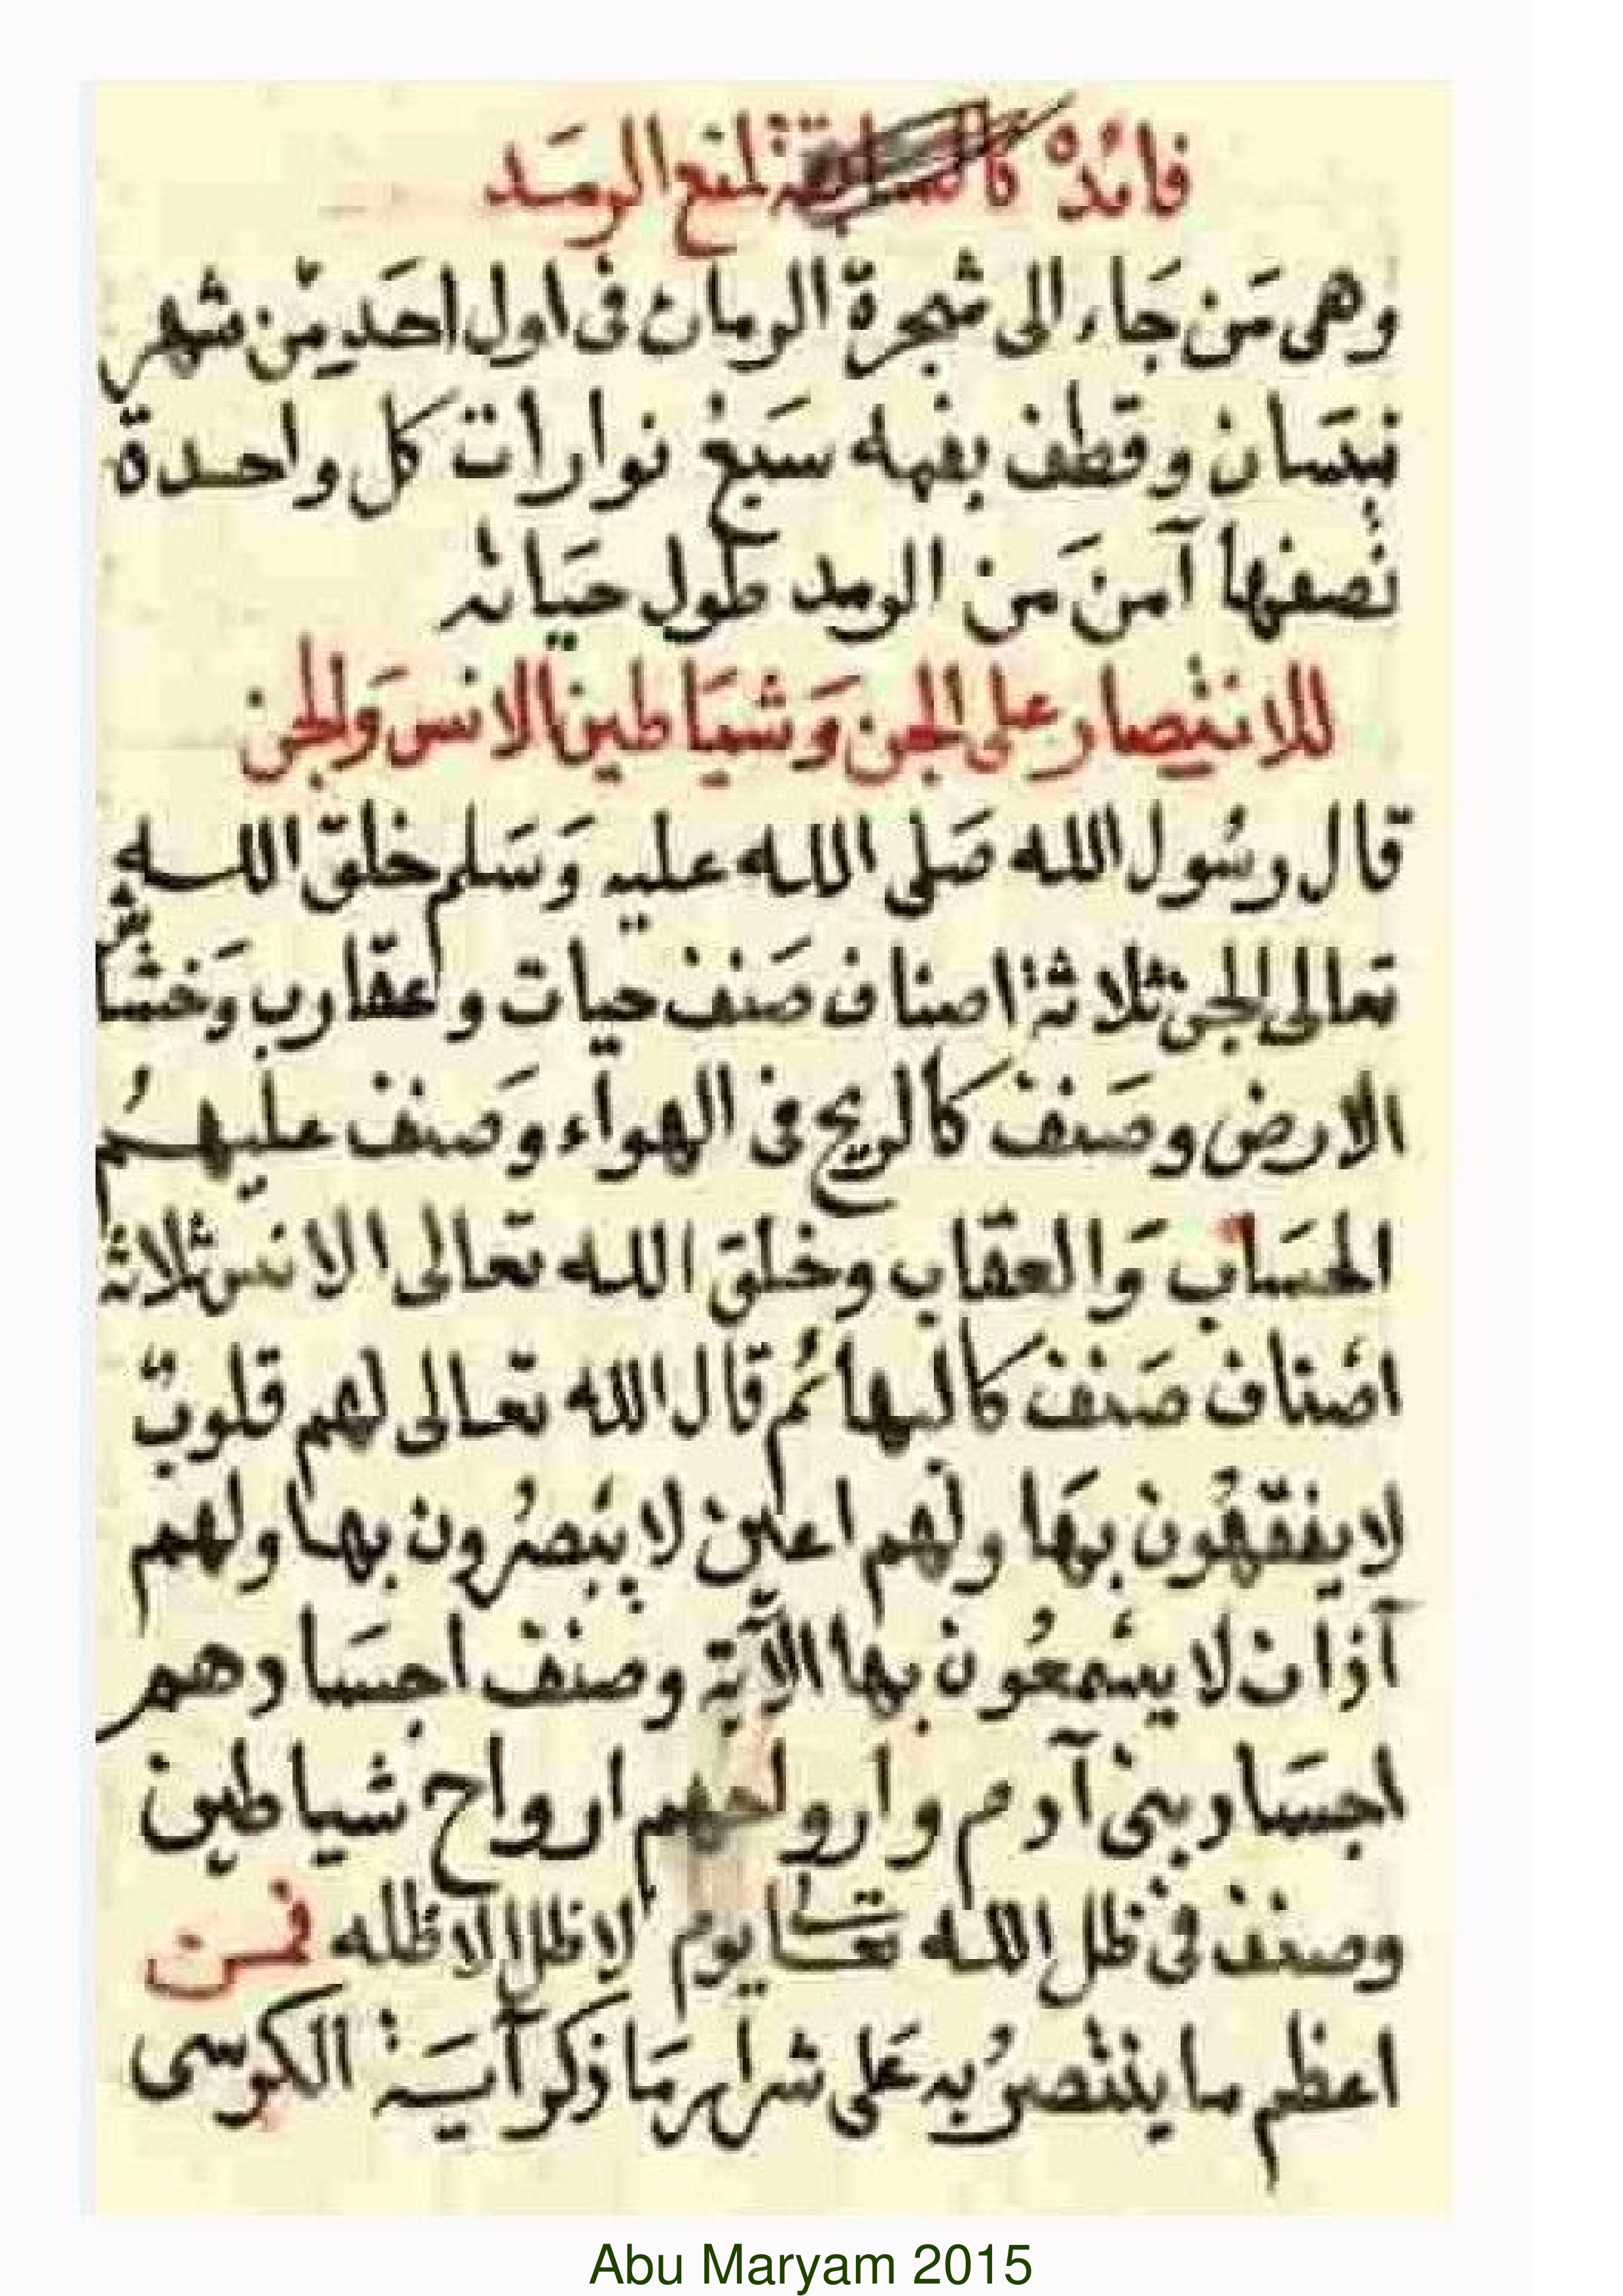 فائدة كالسابقة لمنع الرمد
وهى مَن جَاء الى شجرة الرمان فى اول احَد مِن شهر
نيسَان وقطف بفمه سَبعْ نوارات كل واحدة
نصفها آمنَ مَن الرمد طول حيَاته
للانتصار على الجن وَشيَاطين الانس وَالجن
قال رسُول الله صَلى الله عليه وَسَلم خلقَ الله
تعالى الجن ثلاثة اصناف صَنف حيات وعقارب وَخشاش
الارض وصَنف كالريح فى الهواء وَصنف عليهمُ
الحسَاب وَالعقاب وخلقَ الله تعالى الانس ثلاثة
اصناف صَنف كالبهائم قال الله تعالى لهم قلوبٌ
لا يفقهُون بهَا ولهم اعين لا يبصرُون بها ولهم
آذان لا يسمعُون بها الآية وصنف اجسَادهم
اجسَاد بنى آدم وارواحهم ارواح شياطين
وصنف فى ظل الله تعالى يوم لا ظل الا ظله فمن
اعظم ما ينتصرُ به عَلى شرار مَا ذكر آيَة الكرسى
Abu Maryam 2015